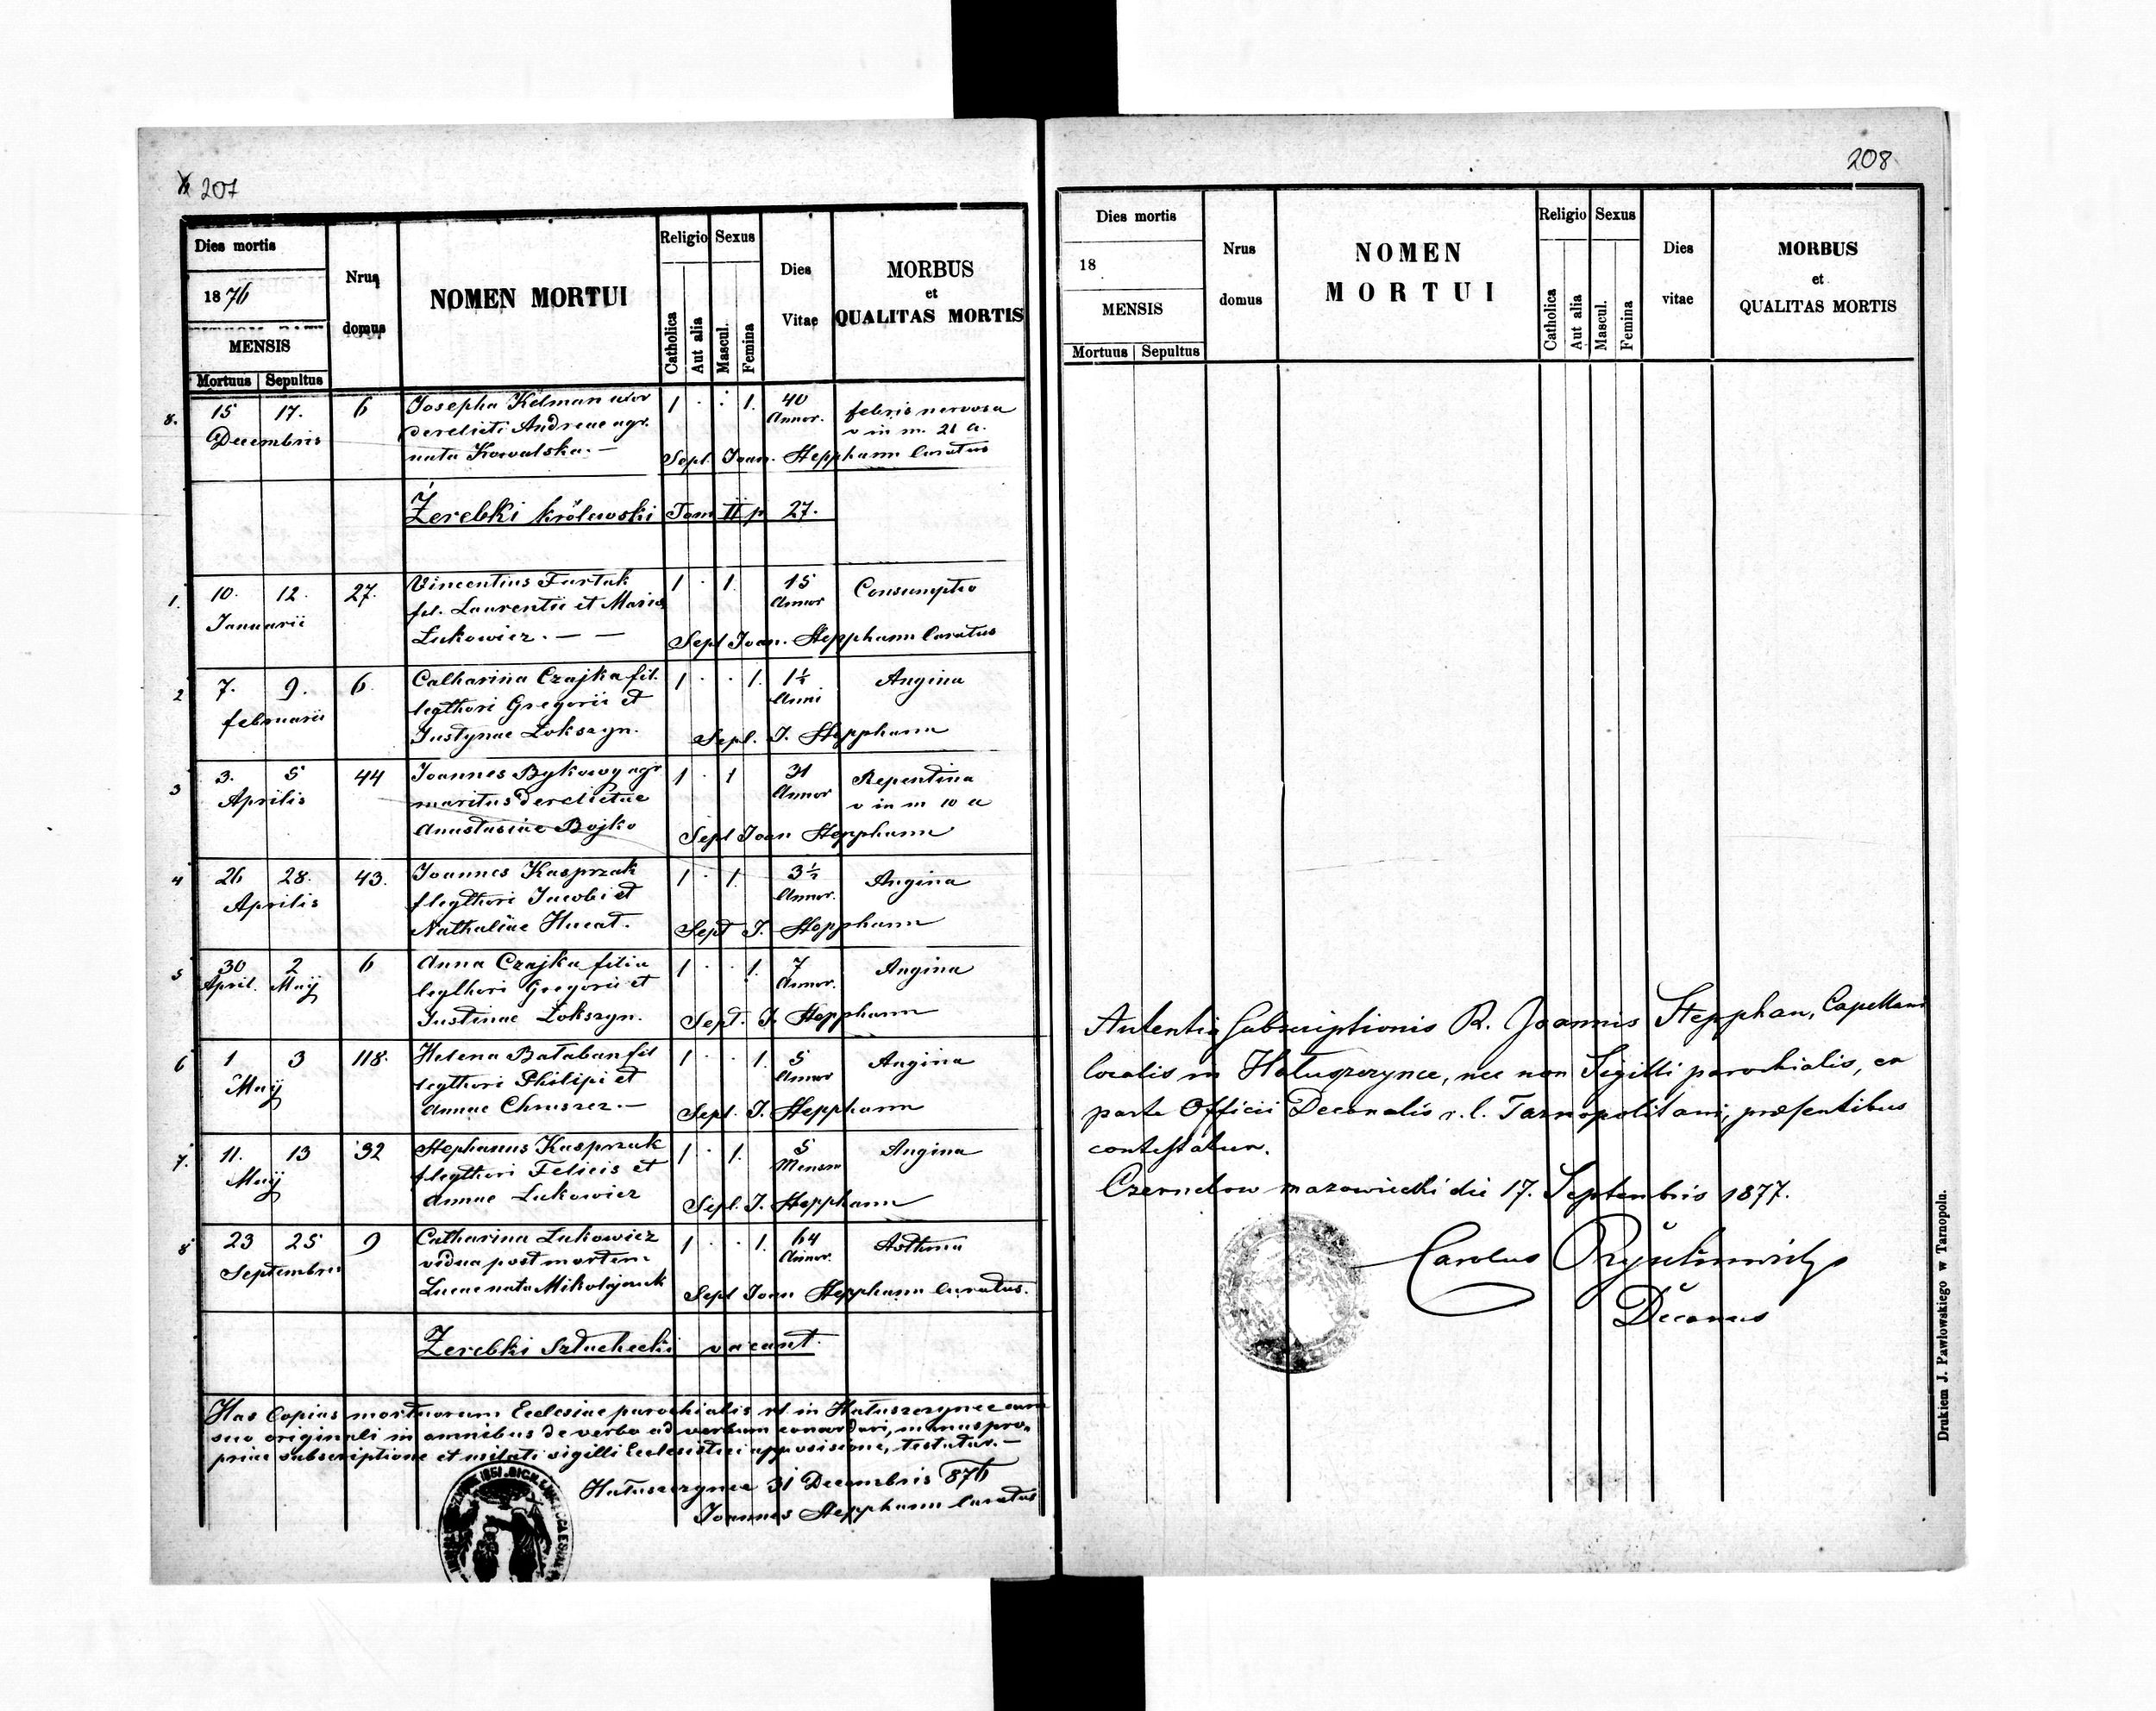 207
Dies mortis
1876
MENSIS
Mortuus Sepultus
Nrus
domus
NOMEN MORTUI
Religio Sexus
Catholica
Aut alia
Mascul.
Femina
Dies
Vitae
MORBUS
et
QUALITAS MORTIS
8. 15 17. 6 Josepha Kelman uxor 1 · : 1. 40 febris nervosa
Decembris derelicti Andreae agr. Annor. v in m. 21 a.
nata Kowalska. — Sepl. Joan. Stepphann Curatus
Żerebki królewski Tom II p 27.
1. 10. 12. 27. Vincentius Furtak 1 · 1. 15 Consumptio
Januarii fil. Laurentii et Maria Annor
Lukowicz. — — Sepl Joan. Stepphann Curatus
2 7. 9. 6. Catharina Czajka fil. 1 · · 1. 1½ Angina
februarii legthori Gregorii et Anni
Justynae Lokszyn. Sepl. J. Stepphann
3 3. 5 44 Joannes Bykowy agr 1 · 1 31 Repentina
Aprilis maritus derelictae Annor v in m 10 a
Anastasiae Bojko Sepl Joan Stepphann
4 26 28. 43. Joannes Kasprzak 1 · 1. 3½ Angina
Aprilis f legthori Jacobi et Annor.
Nathaliae Hucat. Sept J. Stepphann
5 30 2 6 Anna Czajka filia 1 · · 1. 7 Angina
April. Maij legthori Gregorii et Annor.
Justinae Lokszyn. Sept. J. Stepphann
6 1 3 118. Helena Bataban fil 1 · · 1. 5 Angina
Maij legthori Philipi et Annor
Annae Chruszcz. — Sepl. J. Stepphann
7. 11. 13 32 Stephanus Kasprzak 1 · 1. 5 Angina
Maij f legthori Felicis et Mensu
Annae Lukowicz Sepl. J. Stepphann
8 23 25 9 Catharina Lukowicz 1 · · 1. 64 Asthma
Septembris vidua post mortem Annor.
Lucae nata Mikolajczuk Sepl Joan Stepphann Curatus.
Zerebki Sztachecki vacant.
Has Copias mortuorum Ecclesiae parochialis rl in Hatuszczynce cum
suo originali in omnibus de verbo ad verbum concordari, manus pro-
priae subscriptione et mitati sigilli Ecclesistici apposisione, testatur. —
Hatuszczynce 31 Decembris 876
Joannes Stepphann Curatus
208
Dies mortis
18
MENSIS
Mortuus Sepultus
Nrus
domus
NOMEN
MORTUI
Religio Sexus
Catholica
Aut alia
Mascul.
Femina
Dies
vitae
MORBUS
et
QUALITAS MORTIS
Autentia Subscriptionis R. Joannis Stepphan, Capellani
localis in Hatuszczynce, nec non Sigilli parochialis, ex
parte Officii Decanalis r. l. Tarnopolitani, præsentibus
contestatur.
Czernelow mazowiecki die 17. Septembris 1877.
Carolus
Decanus
Drukiem J. Pawłowskiego w Tarnopolu.